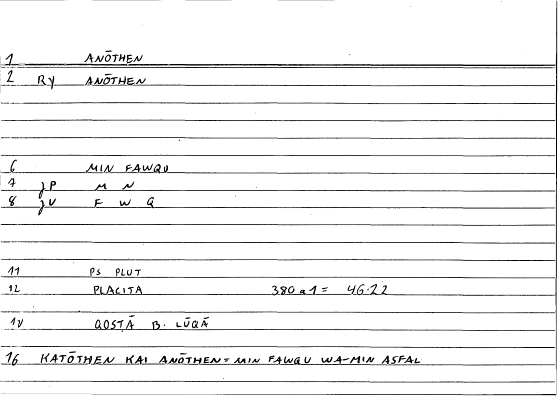 1 ANŌTHEN
2 Ry ANŌTHEN
6 MIN FAWQU
7 jP M N
8 jV F W Q
11 PS PLUT
12 PLACITA 380 a 1 = 46.22
14 QOSṬĀ B. LŪQĀ
16 KATŌTHEN KAI ANŌTHEN = MIN FAWQU WA-MIN ASFAL